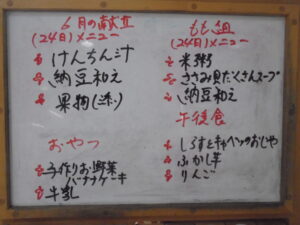 6月の献立
(24日)メニュー
けんちん汁
納豆和え
果物(添)
おやつ
手作りお野菜
バナナケーキ
牛乳
もも組
(24日)メニュー
米粥
ささみ具だくさんスープ
納豆和え
午後食
しらすとキャベツのおじや
ふかし芋
りんご